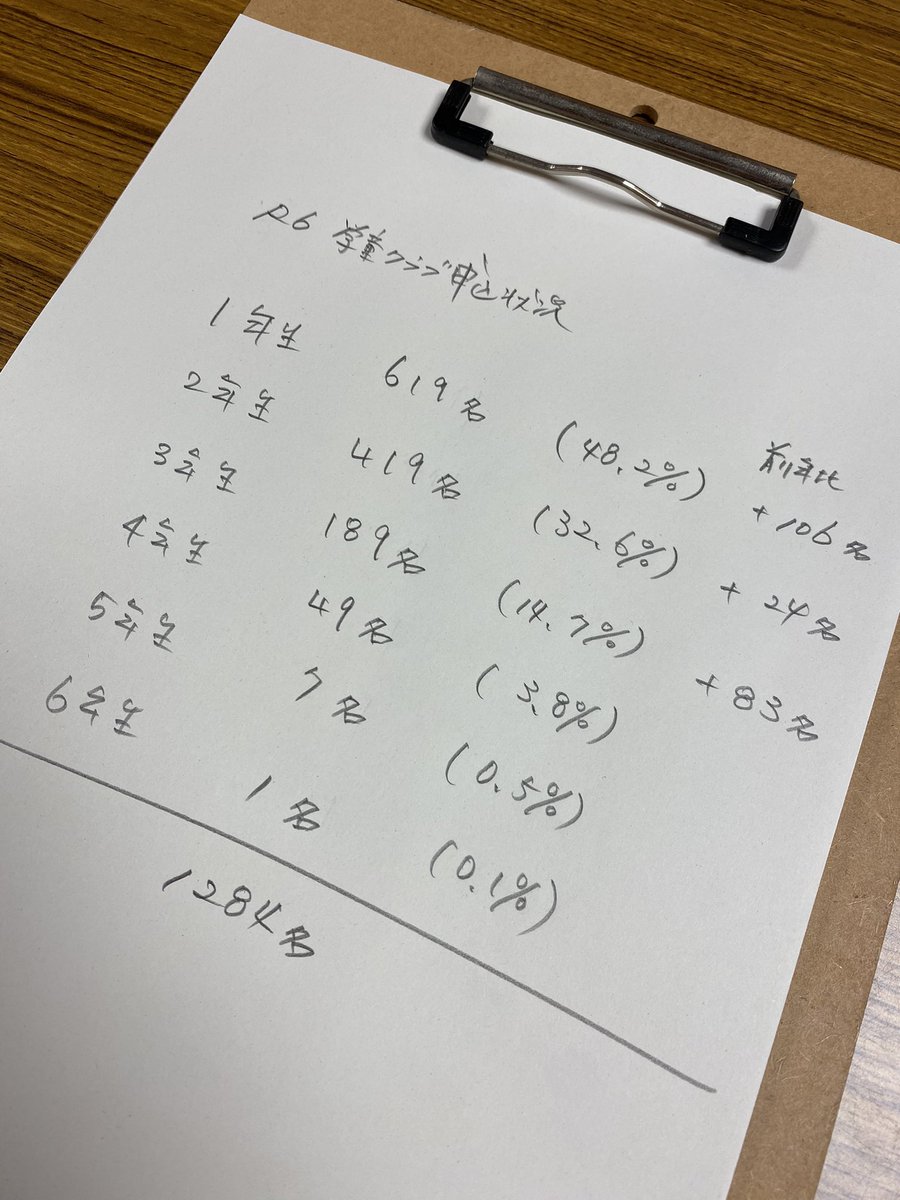 R6 学童クラブ申込状況
前年比
1年生 619名 (48.2%) +106名
2年生 419名 (32.6%) +24名
3年生 189名 (14.7%) +83名
4年生 49名 (3.8%)
5年生 7名 (0.5%)
6年生 1名 (0.1%)
1284名